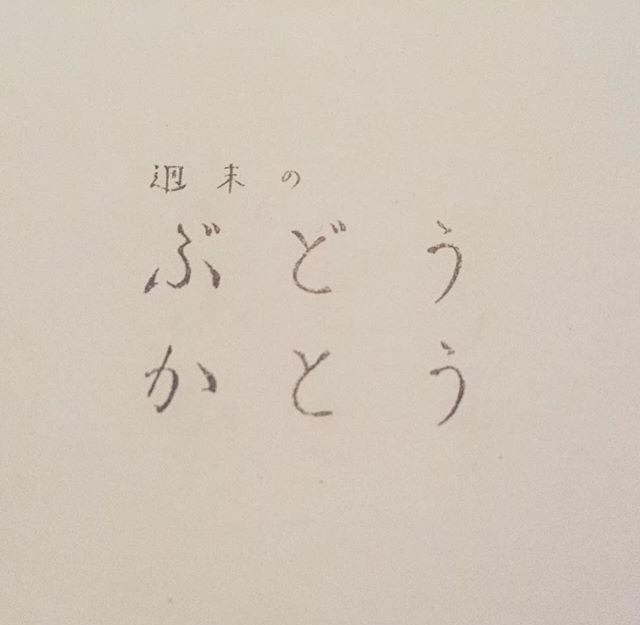 週末の
ぶどう
かとう